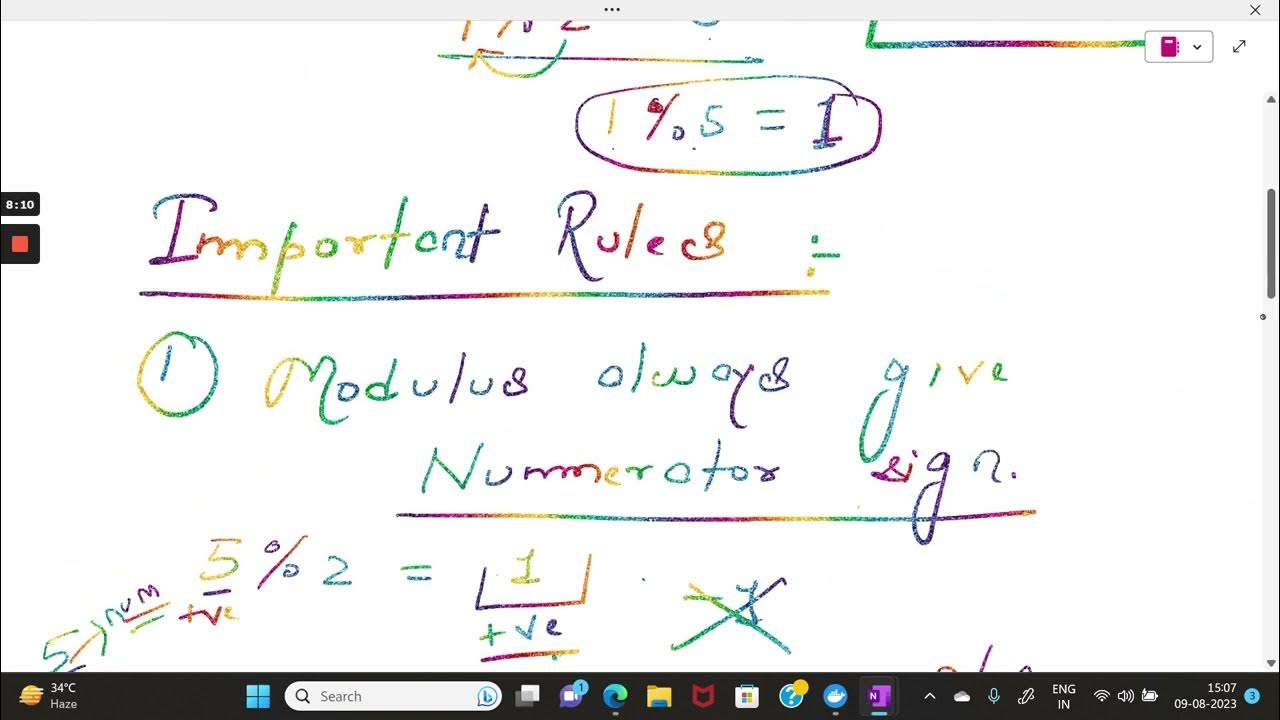 1 % 5 = 1
8:10
Important Rules :-
① Modulus always give
Nummerator sign.
5 % 2 = 1
num
+ve
+ve
-1
5
34°C
Search
1
ENG
IN
15:07
09-08-2023
3